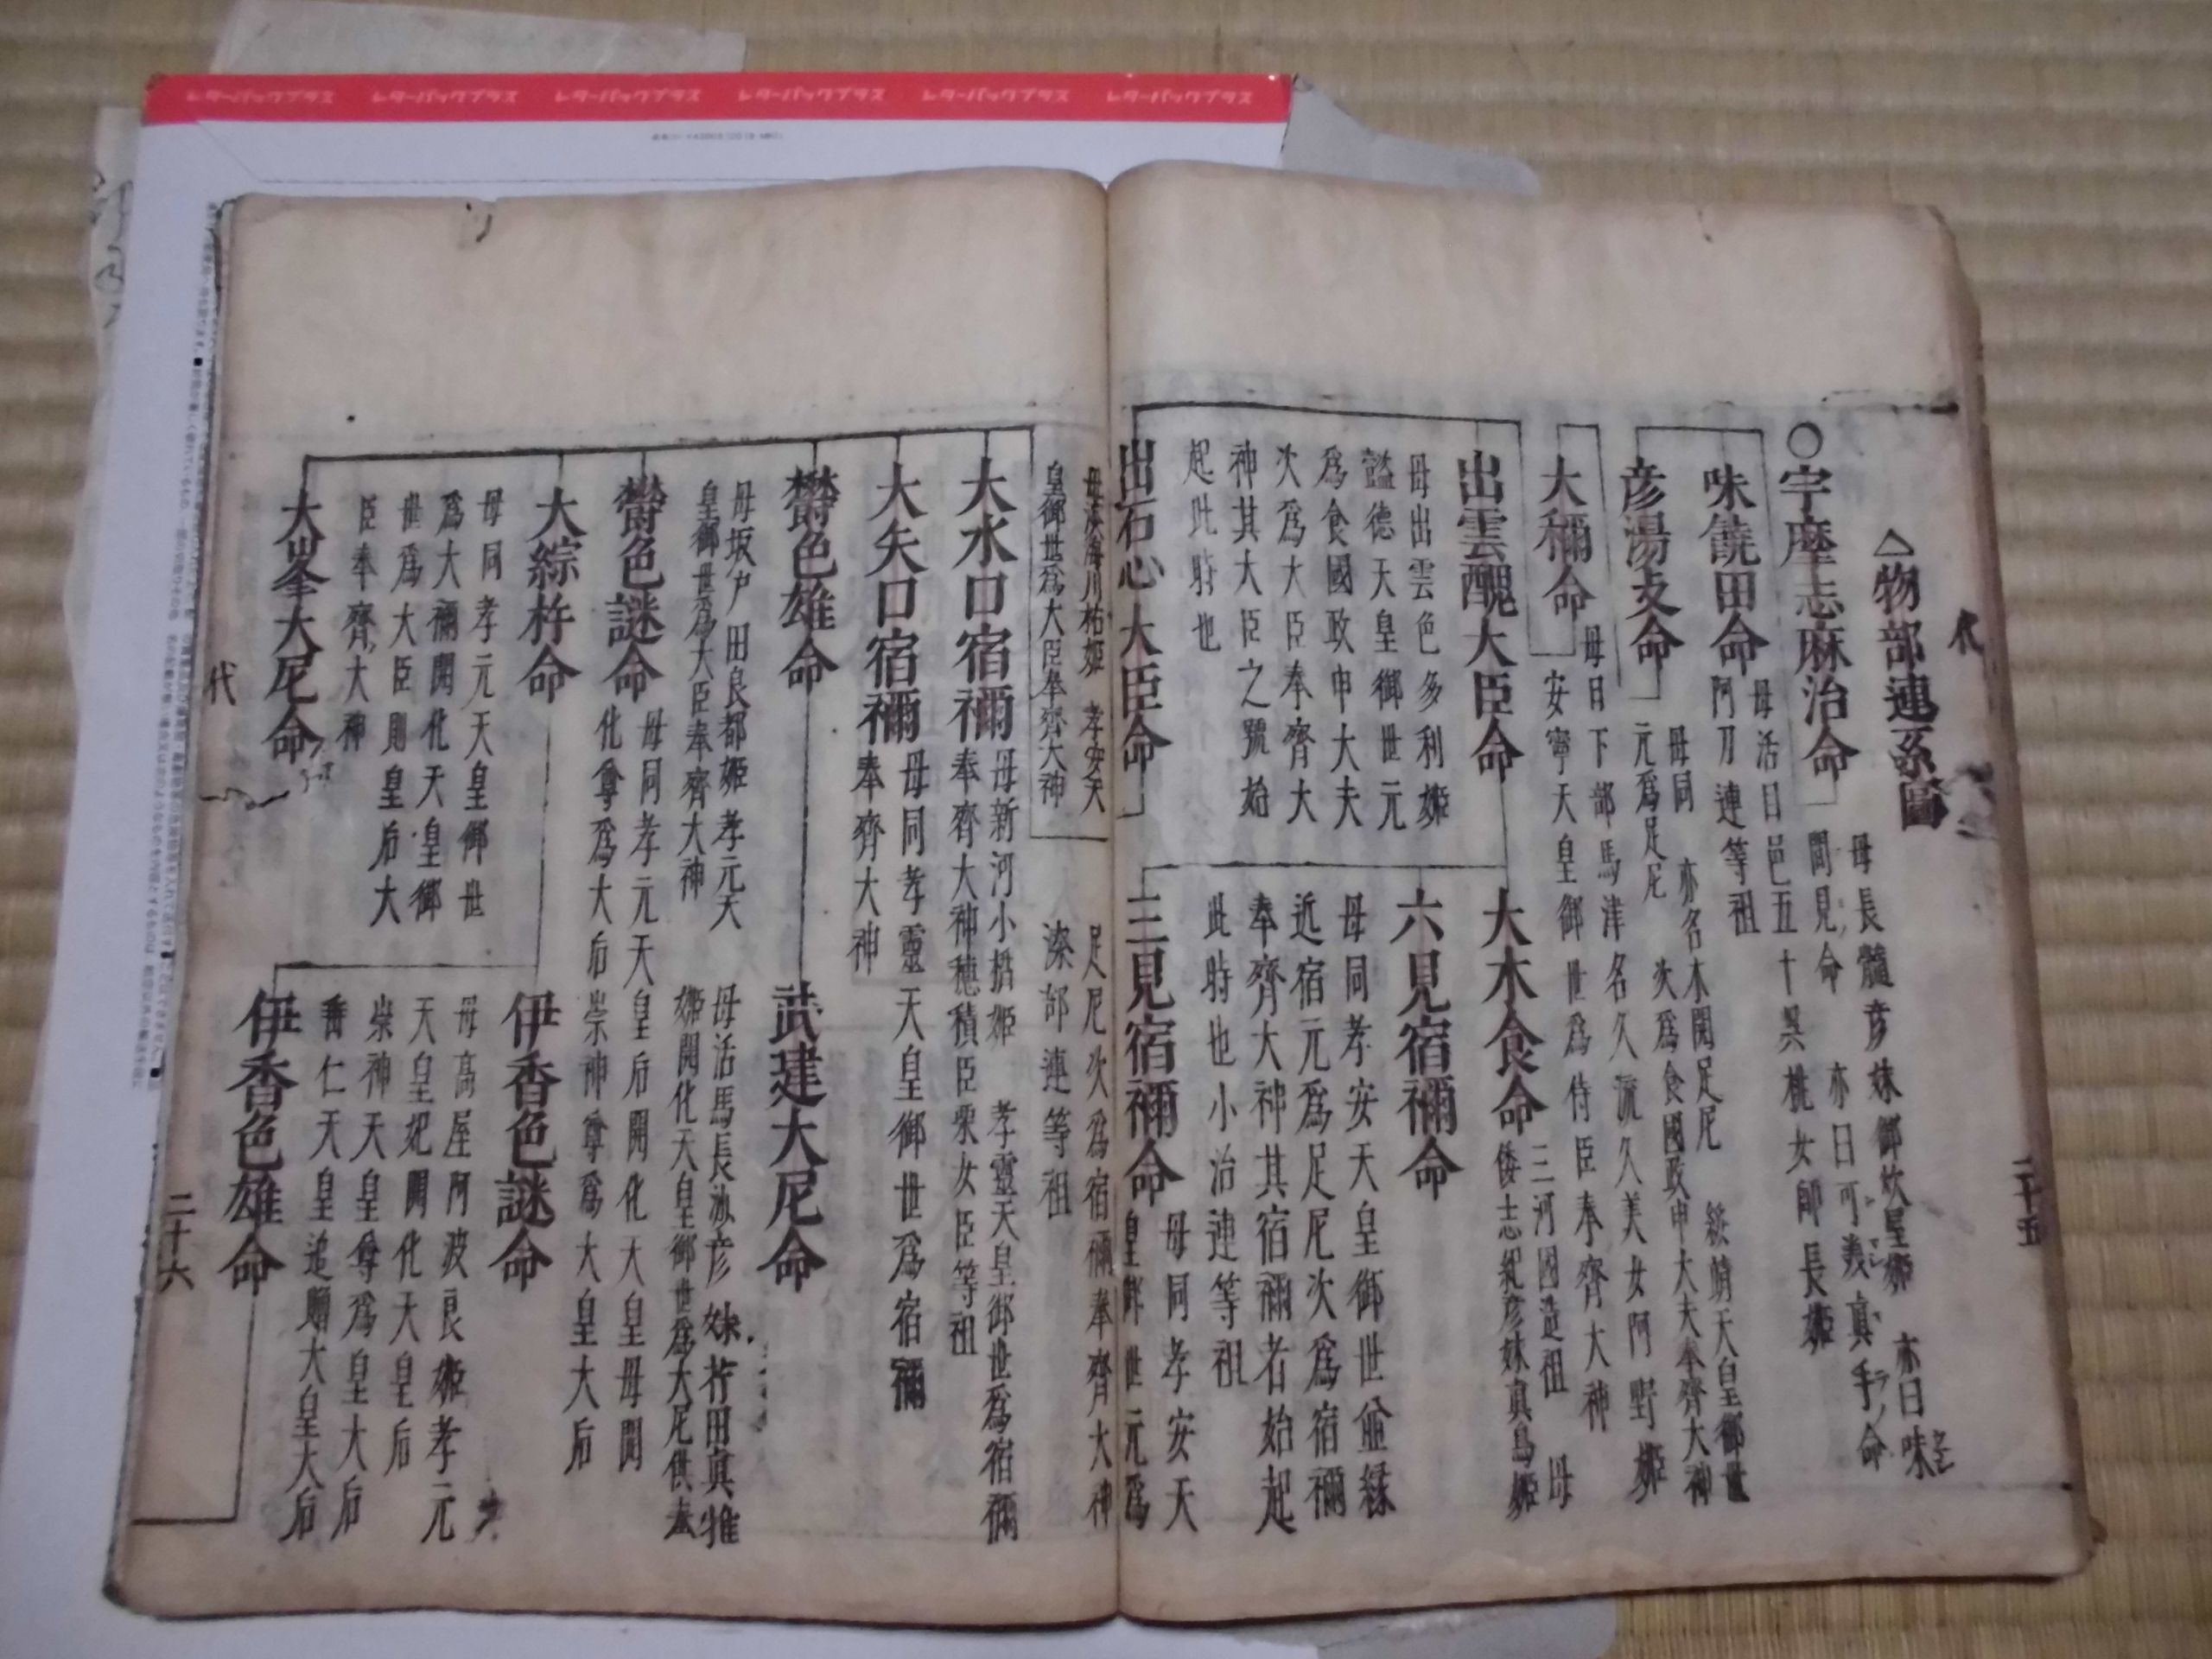 レターパックプラス レターパックプラス レターパックプラス レターパックプラス レターパックプラス レターパックプラス
代
二十五
△物部連系圖
○宇摩志麻治命
母長髓彦妹御炊屋姬 亦曰味
間見命 亦曰可美真手命
味饒田命
母活目邑五十呉桃女師長姬
阿刀連等祖
彦湯支命
母同 亦名木開足尼 綏靖天皇御世
元爲足尼 次爲食國政申大夫奉齊大神
大禰命
母日下部馬津名久流久美女阿野姬
安寧天皇御世爲侍臣奉齊大神
出雲醜大臣命
母出雲色多利姬
懿德天皇御世元
爲食國政申大夫
次爲大臣奉齊大
神其大臣之號始
起此時也
大木食命
三河國造祖 母
倭志紀彦妹真鳥姬
六見宿禰命
母同孝安天皇御世並縁
近宿元爲足尼次爲宿禰
奉齊大神其宿禰者始起
此時也小治連等祖
三見宿禰命
母同孝安天
皇御世元爲
足尼次爲宿禰奉齊大神
漆部連等祖
出石心大臣命
皇御世爲大臣奉齊大神
大水口宿禰
母新河小楯姬 孝靈天皇御世爲宿禰
奉齊大神穂積臣采女臣等祖
大矢口宿禰
母同孝靈天皇御世爲宿禰
奉齊大神
欝色雄命
母坂戸田良都姬孝元天
皇御世爲大臣奉齊大神
武建大尼命
姬開化天皇御世爲大尼供奉
欝色謎命
母同孝元天皇后開化大皇母開
化尊爲大后崇神尊爲大皇大后
大綜杵命
母同孝元天皇御世
爲大禰開化天皇御
世爲大臣則皇后大
臣奉齊大神
伊香色謎命
母高屋阿波良姬孝元
天皇妃開化天皇后
崇神天皇尊爲皇大后
垂仁天皇追贈大皇大后
伊香色雄命
大峯大尼命
代
二十六